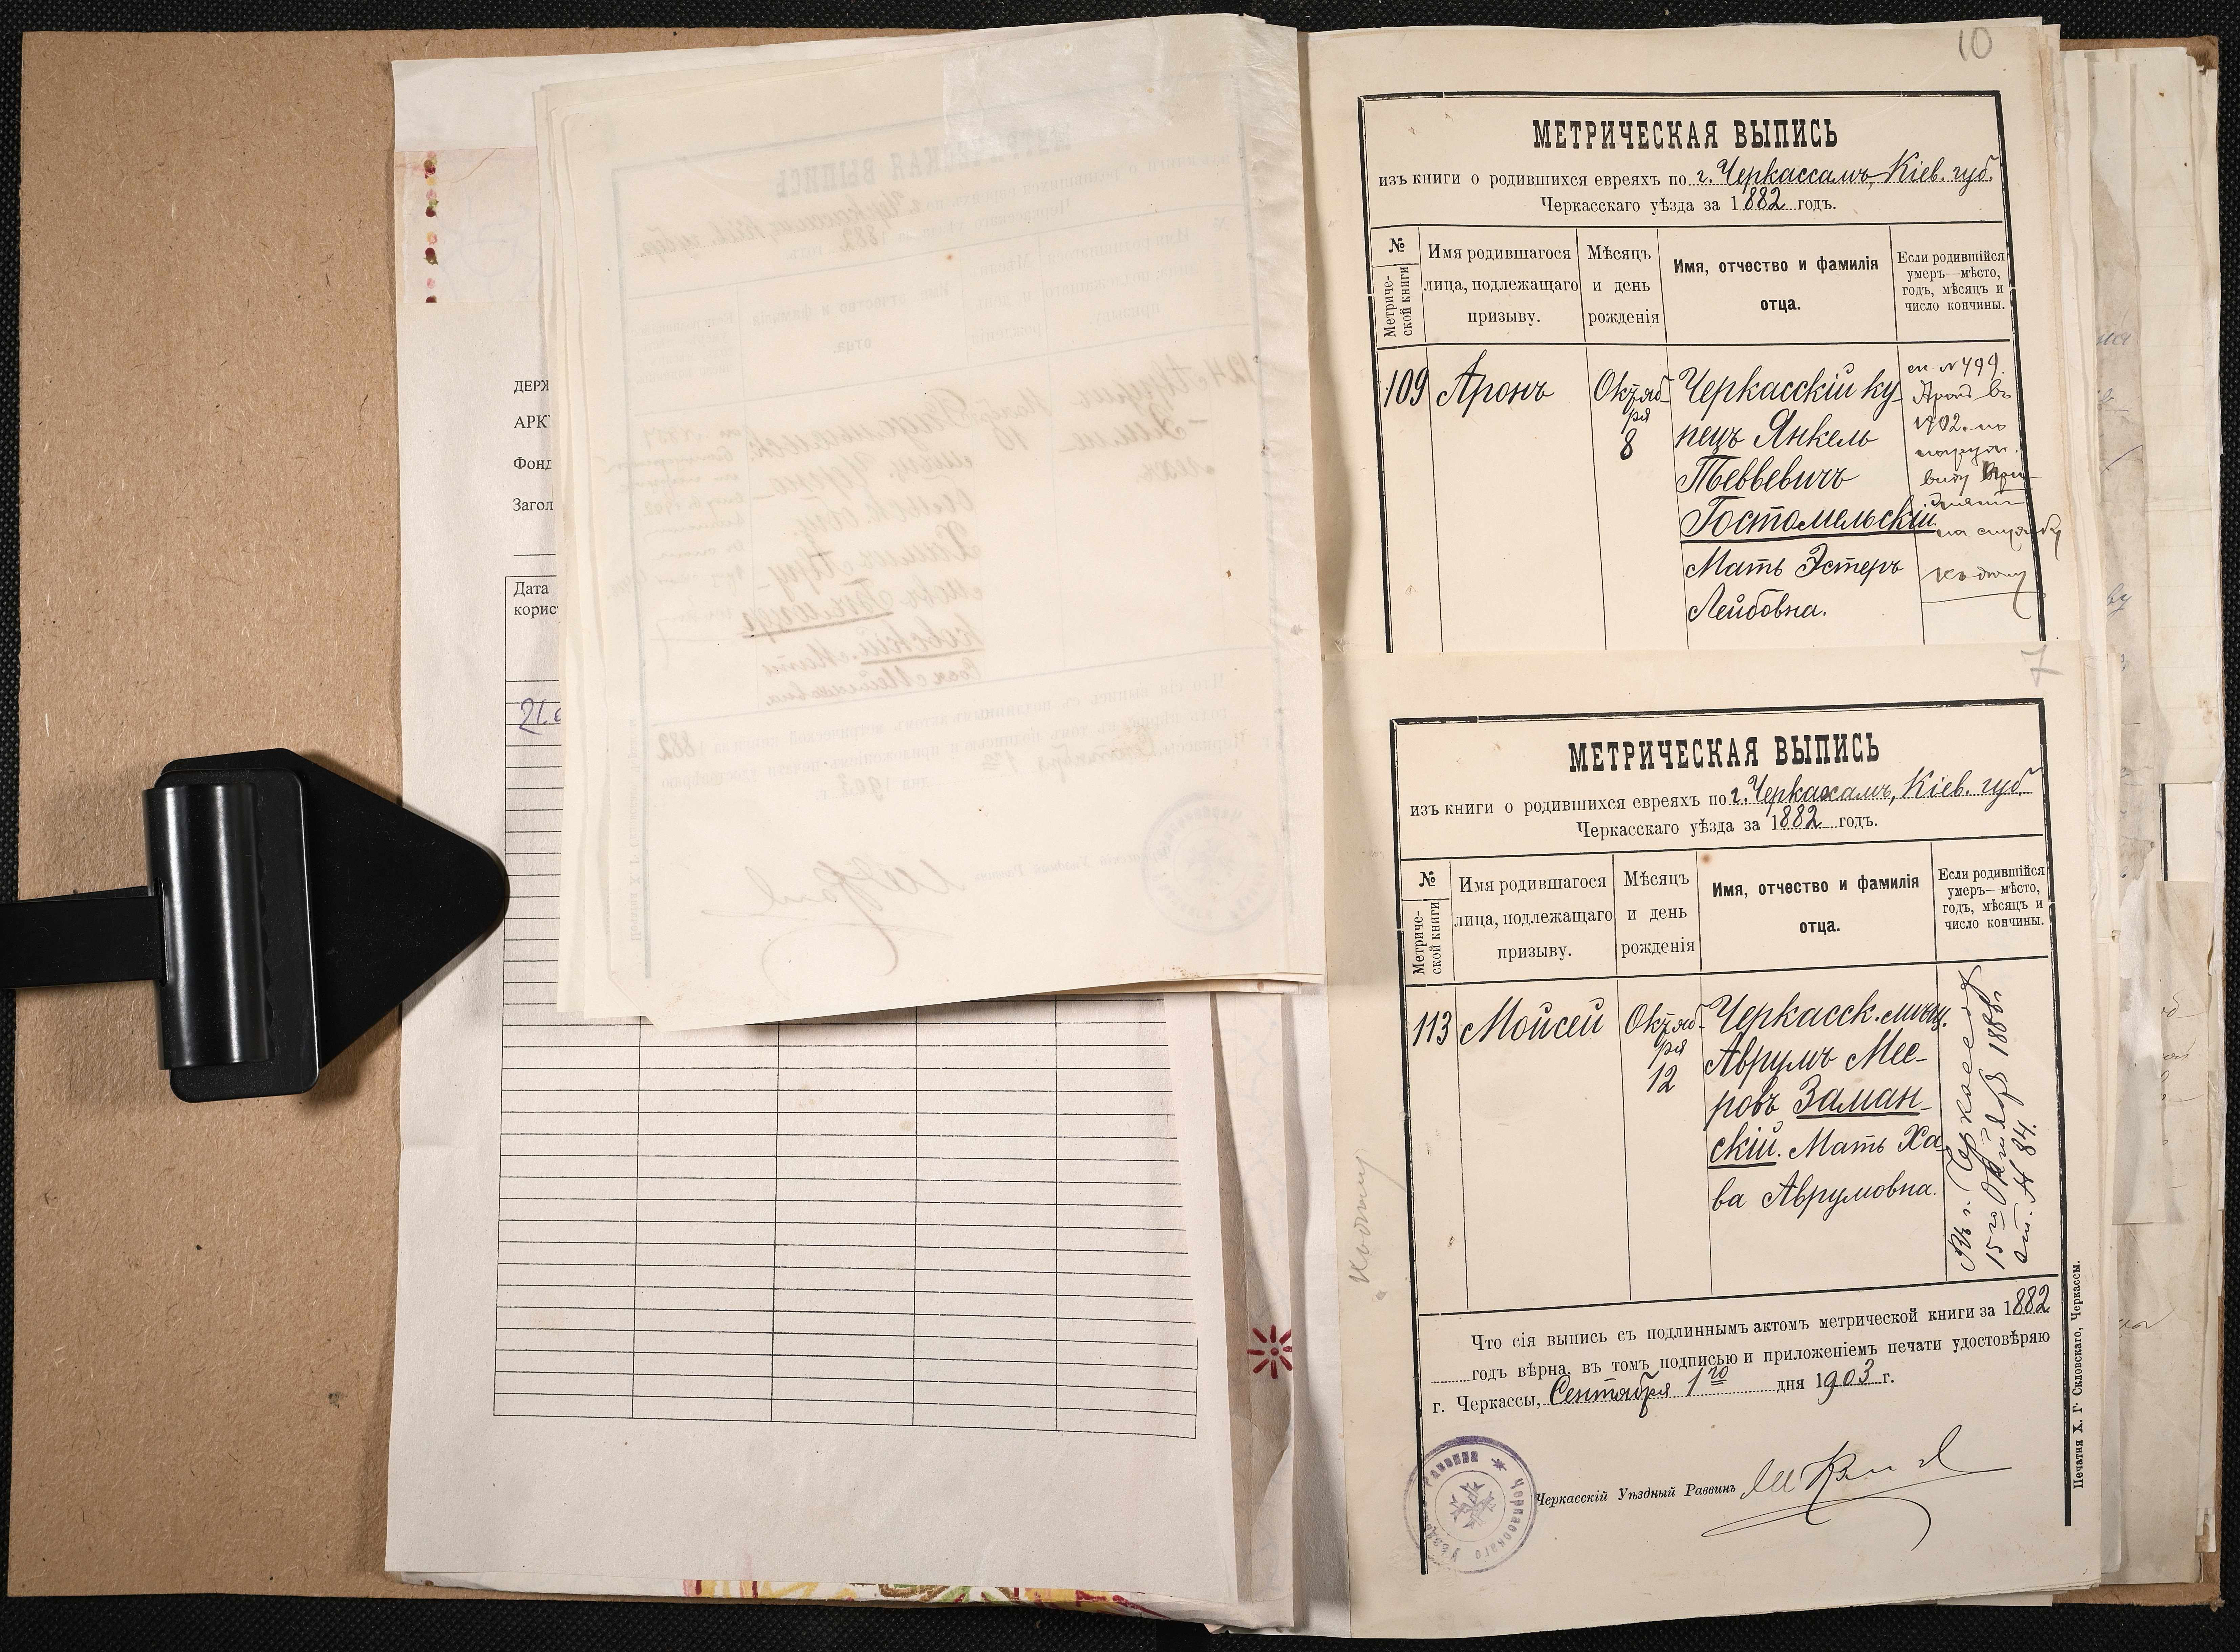 ДЕРЖ
АРК
Фонд
Загол
Дата
корис
21.
10
МЕТРИЧЕСКАЯ ВЫПИСЬ
изъ книги о родившихся евреяхъ по г. Черкассамъ, Кіев. губ.
Черкасскаго уѣзда за 1882 годъ.
№
Метриче-
ской книги
Имя родившагося
лица, подлежащаго
призыву.
Мѣсяцъ
и день
рожденія
Имя, отчество и фамилія
отца.
Если родившійся
умеръ—мѣсто,
годъ, мѣсяцъ и
число кончины.
109
Аронъ
Октяб-
ря
8
Черкасскій ку-
пецъ Янкель
Тевьевичъ
Гостомельскій.
Мать Эстеръ
Лейбовна.
сп. №499.
Аронъ въ
1902. по
на службу
7
МЕТРИЧЕСКАЯ ВЫПИСЬ
изъ книги о родившихся евреяхъ по г. Черкассамъ, Кіев. губ.
Черкасскаго уѣзда за 1882 годъ.
№
Метриче-
ской книги
Имя родившагося
лица, подлежащаго
призыву.
Мѣсяцъ
и день
рожденія
Имя, отчество и фамилія
отца.
Если родившійся
умеръ—мѣсто,
годъ, мѣсяцъ и
число кончины.
113
Мойсей
Октяб-
ря
12
Черкасск. мѣщ.
Аврумъ Мее-
ровъ Заман-
скій. Мать Ха-
ва Аврумовна.
Въ г. Черкассахъ
15-го Октября 1886 г
акт. № 84.
Что сія выпись съ подлиннымъ актомъ метрической книги за 1882
годъ вѣрна, въ томъ подписью и приложеніемъ печати удостовѣряю
г. Черкассы, Сентября 1го дня 1903 г.
Черкасскій Уѣздный Раввинъ
Печатня Х. Г. Скловскаго, Черкассы.